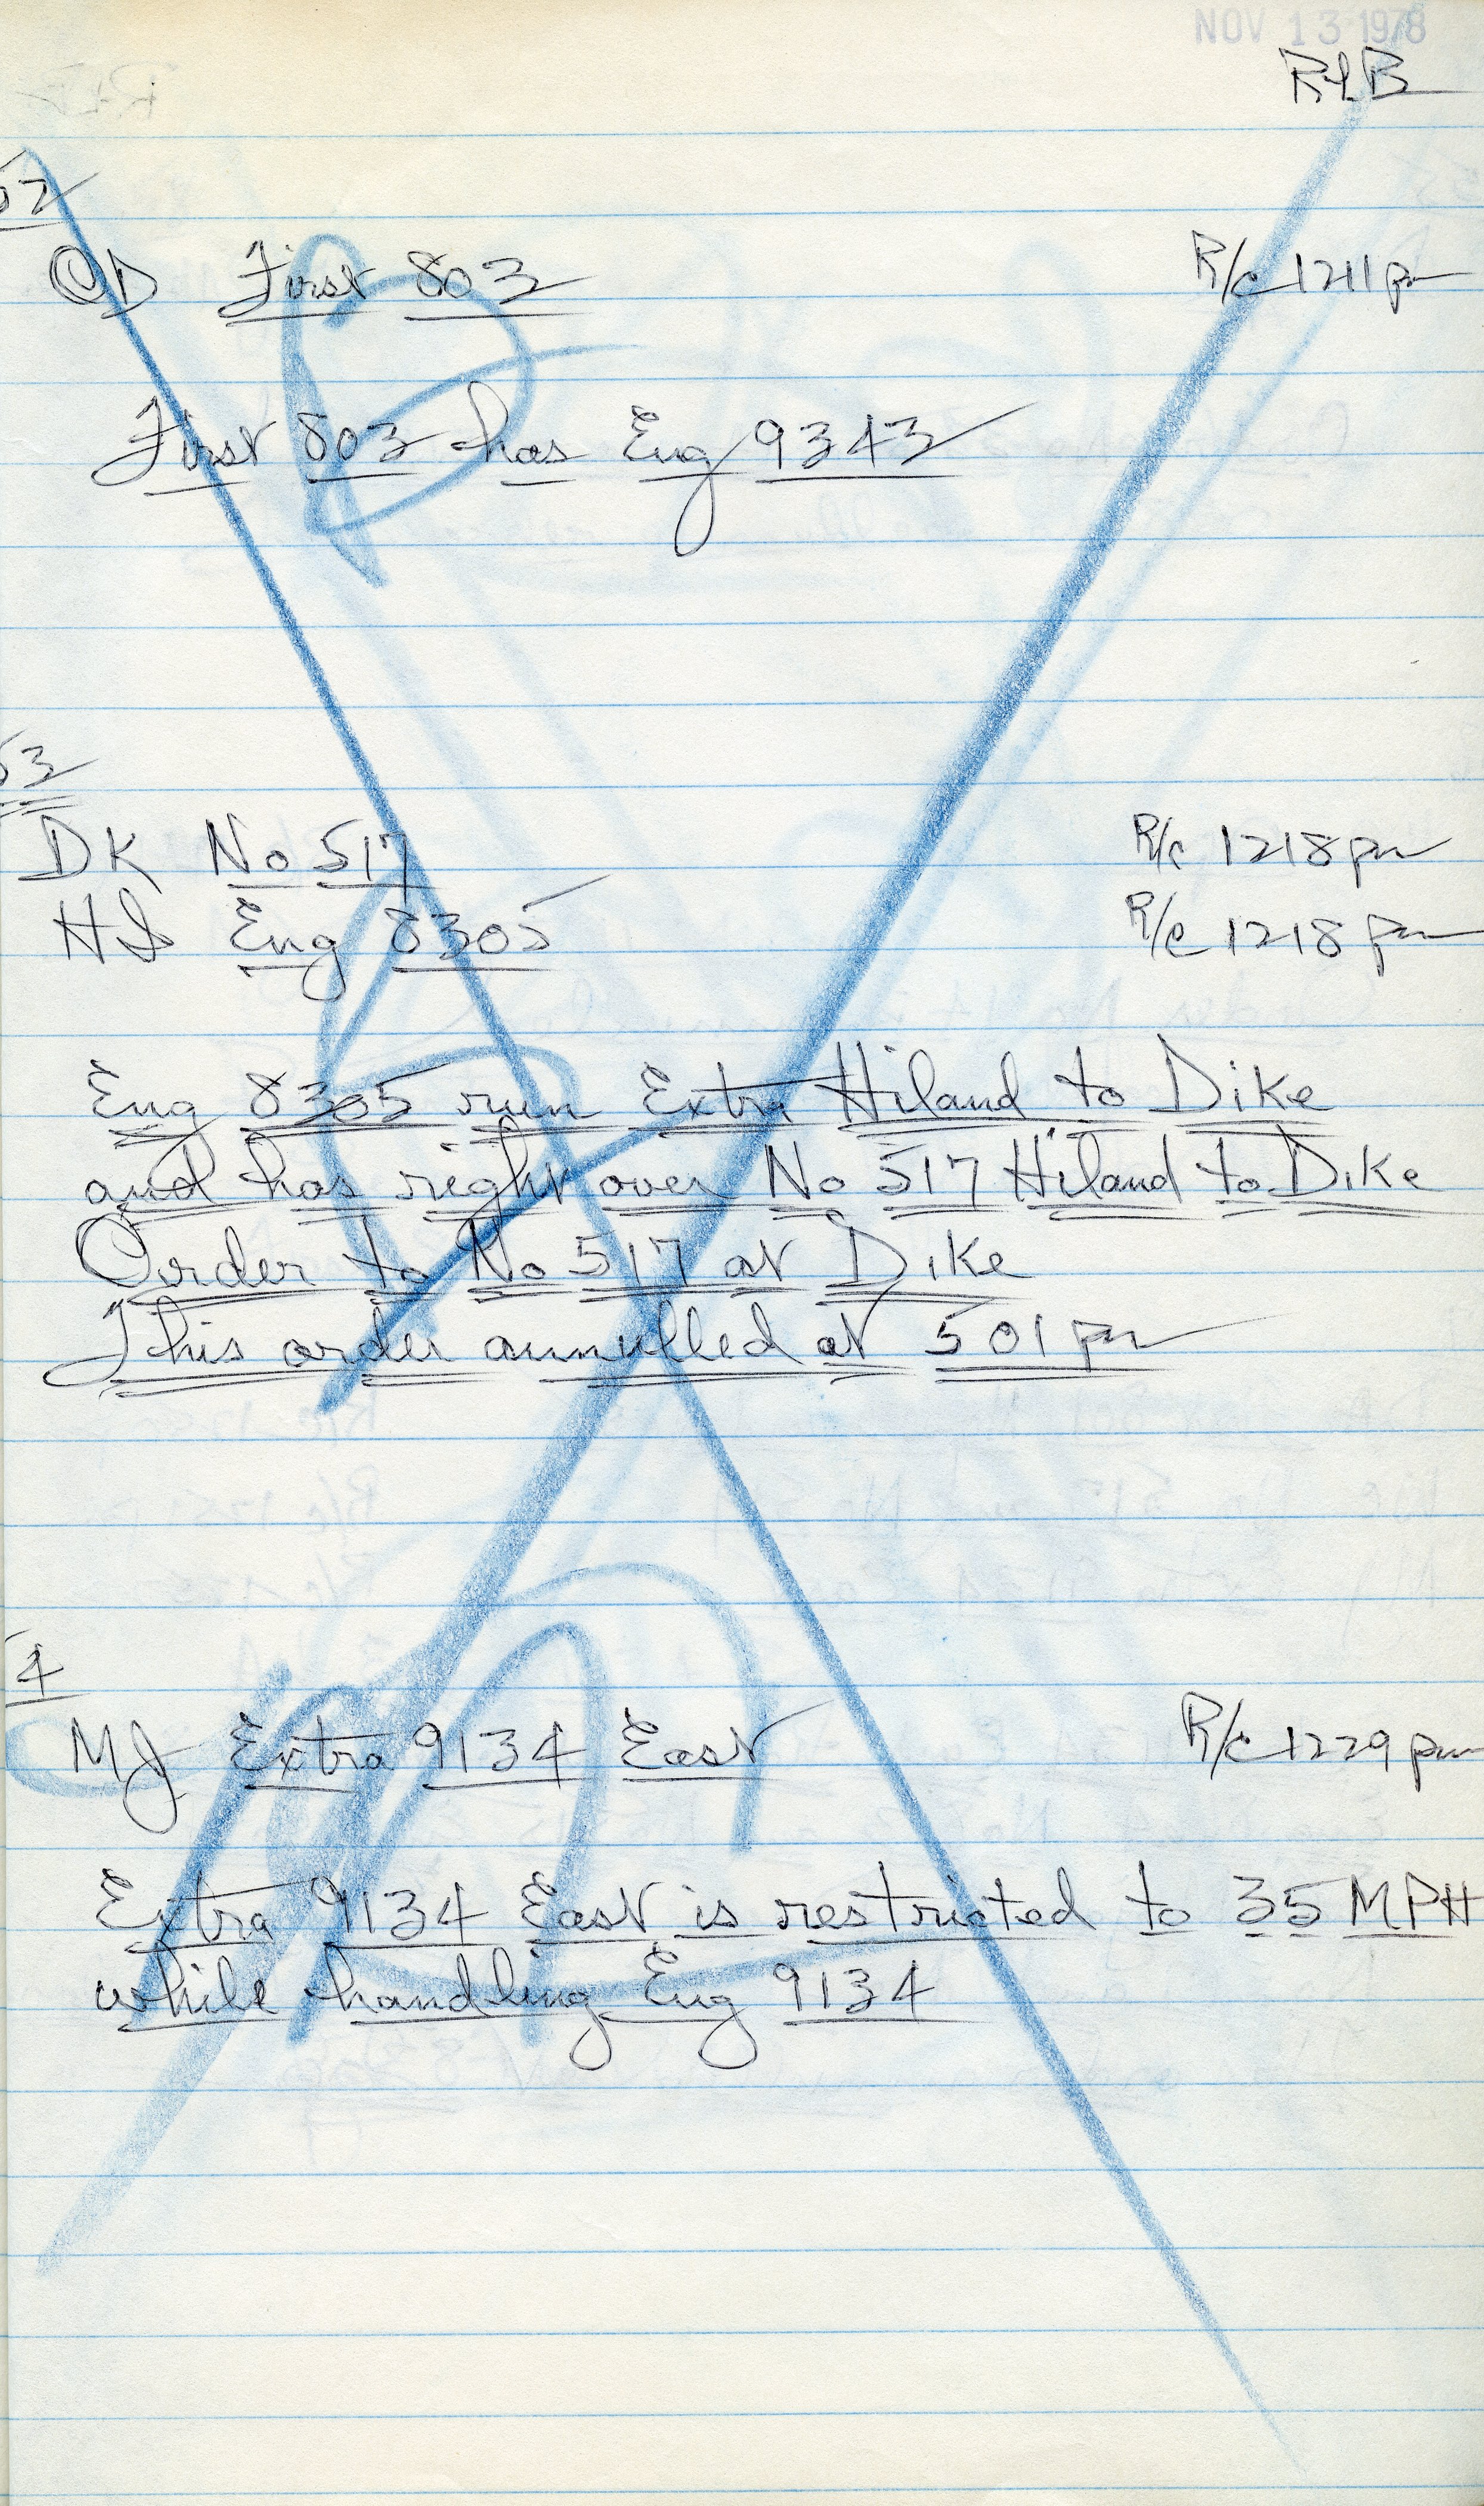 NOV 13 1978
RLB
52
CD First 803 R/c 1211 pm
First 803 has Eng 9343
53
DK No 517 R/c 1218 pm
HI Eng 8305 R/c 1218 pm
Eng 8305 run Extra Hiland to Dike
and has right over No 517 Hiland to Dike
Order to No 517 at Dike
This order annulled at 501 pm
4
MJ Extra 9134 East R/c 1229 pm
Extra 9134 East is restricted to 35 MPH
while handling Eng 9134